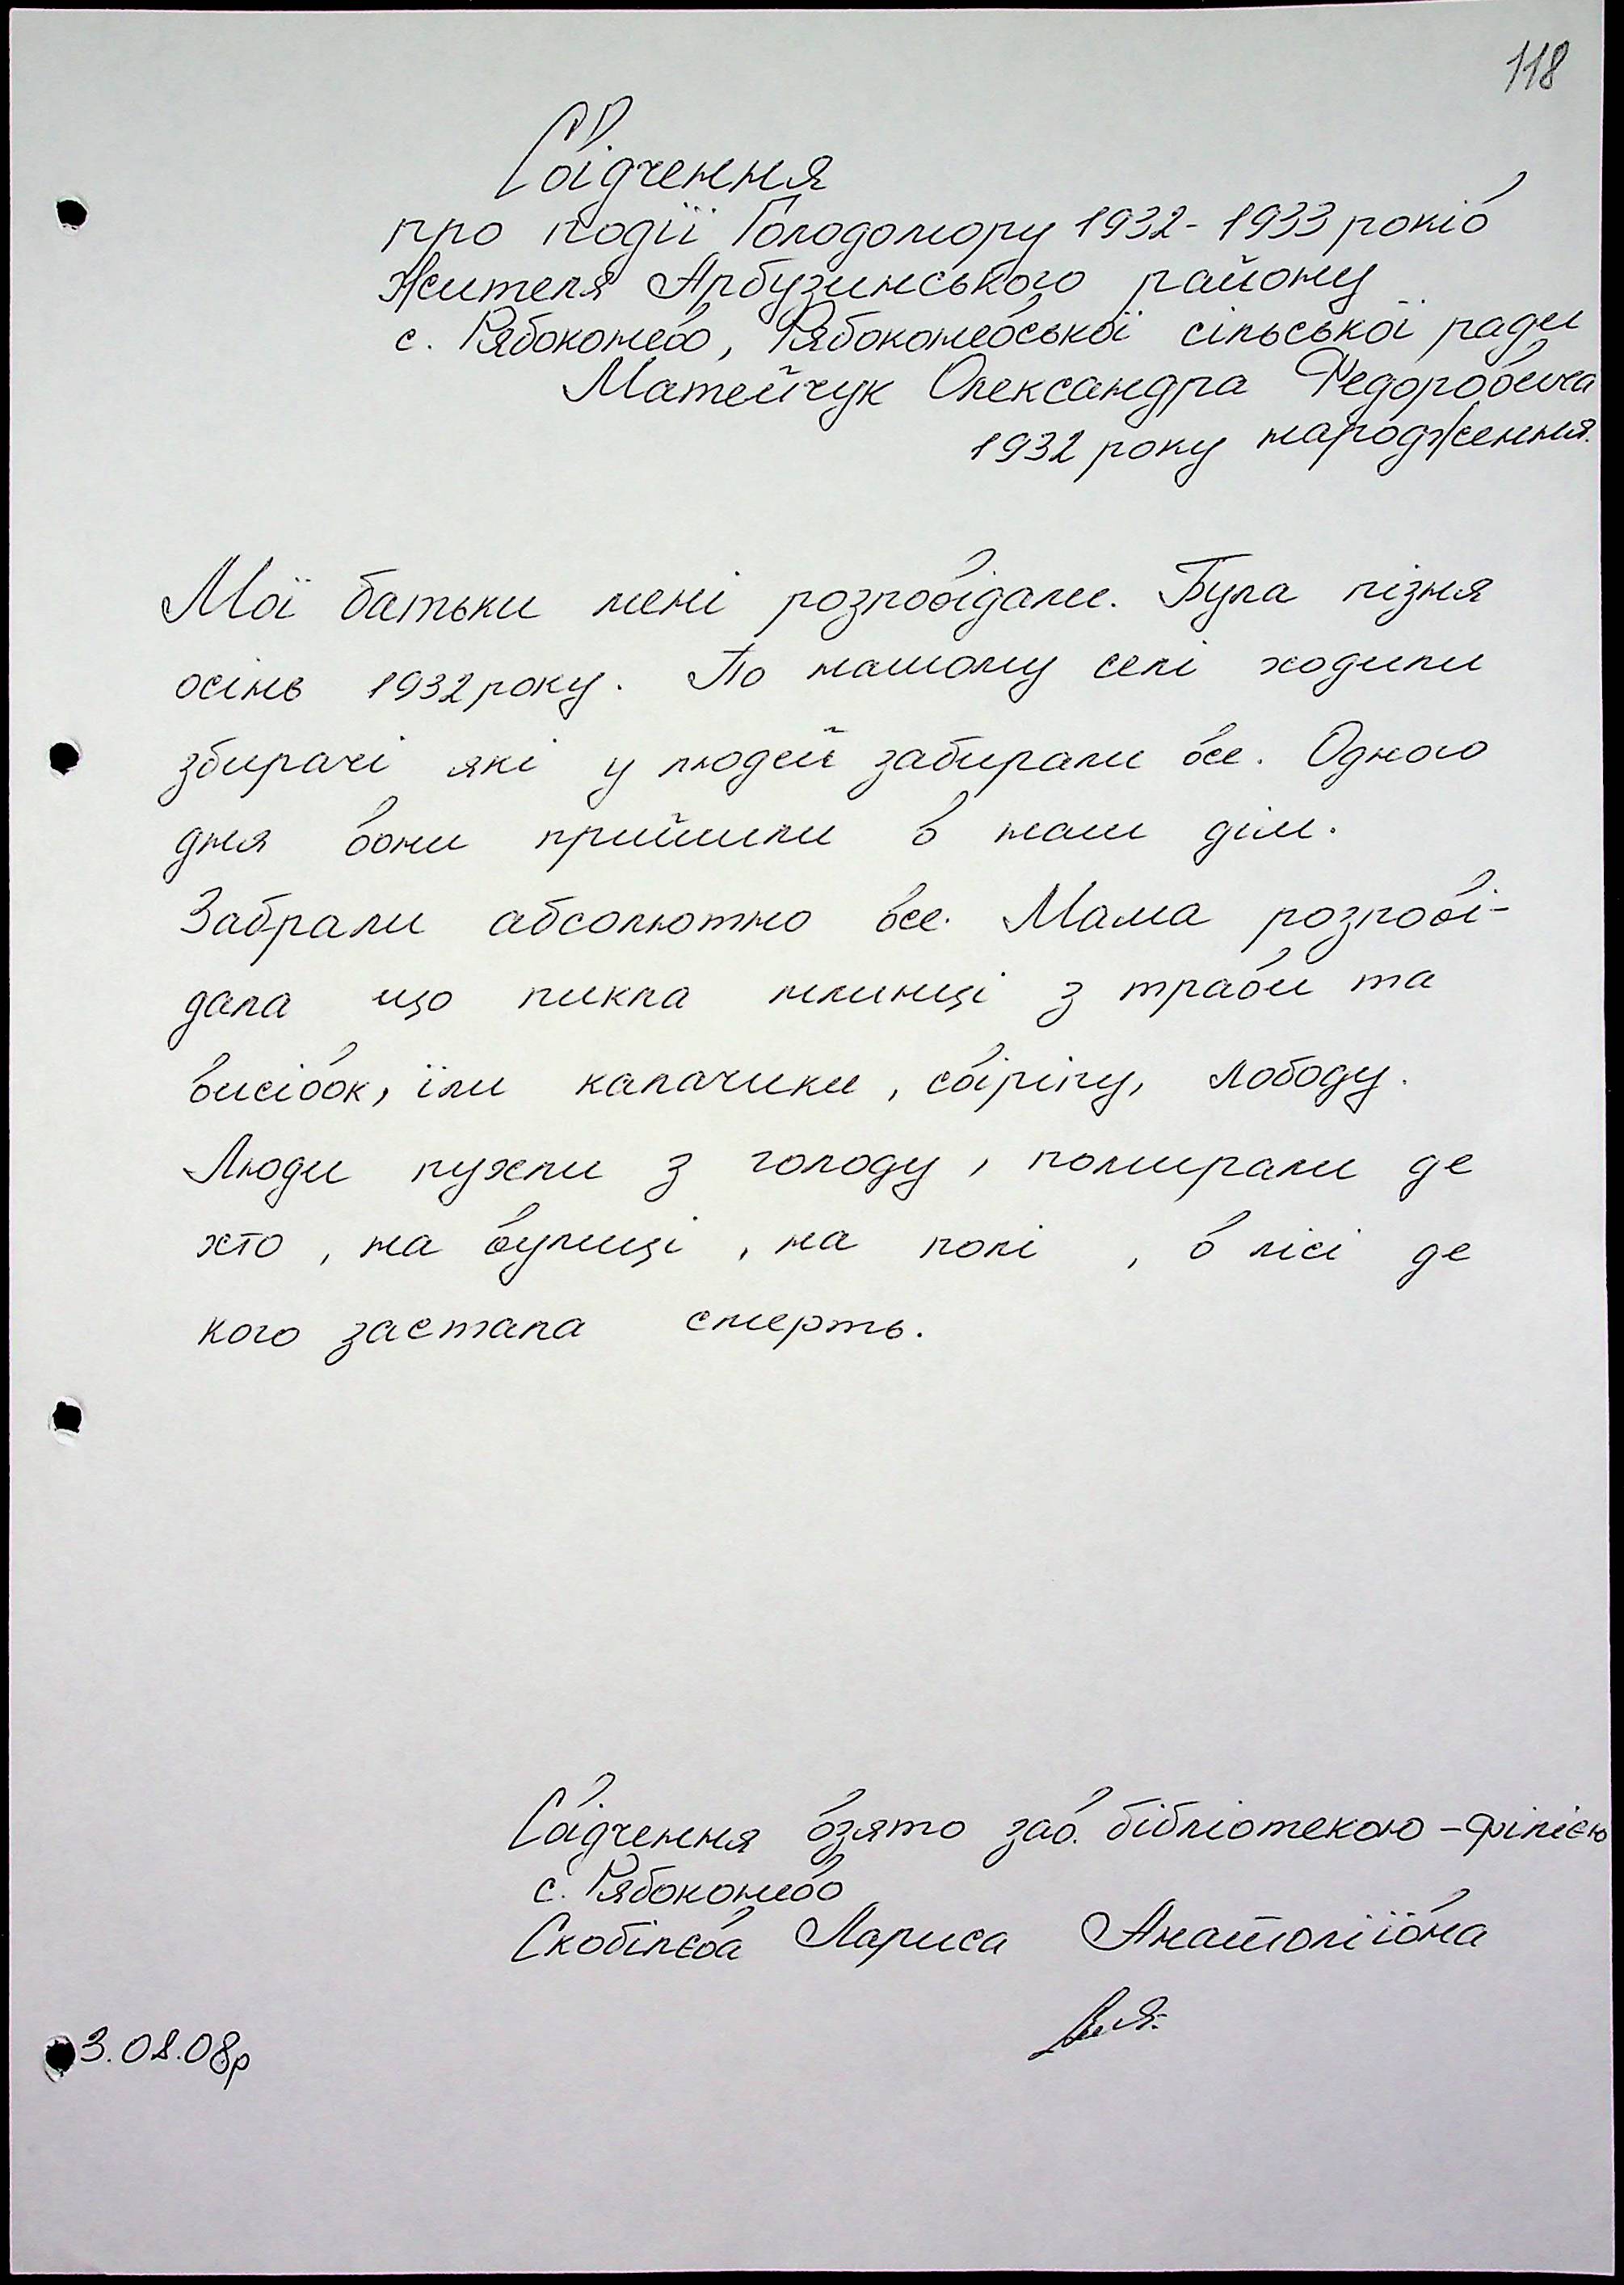 118
Свідчення
про події Голодомору 1932-1933 років
Жителя Арбузинського району
с. Рябоконево, Рябоконевської сільської ради
Матейчук Олександра Федоровича
1932 року народження.
Мої батьки мені розповідали. Була пізня
осінь 1932 року. По нашому селі ходили
збирачі які у людей забирали все. Одного
дня вони прийшли в наш дім.
Забрали абсолютно все. Мама розпові-
дала що пикла млинці з трави та
висівок, їли калачики, свіріпу, лободу.
Люди пухли з голоду, помирали де
хто, на вулиці, на полі, в лісі де
кого застала смерть.
Свідчення взято зав. бібліотекою-філією
с. Рябоконево
Скобілєва Лариса Анатоліївна
3.08.08р